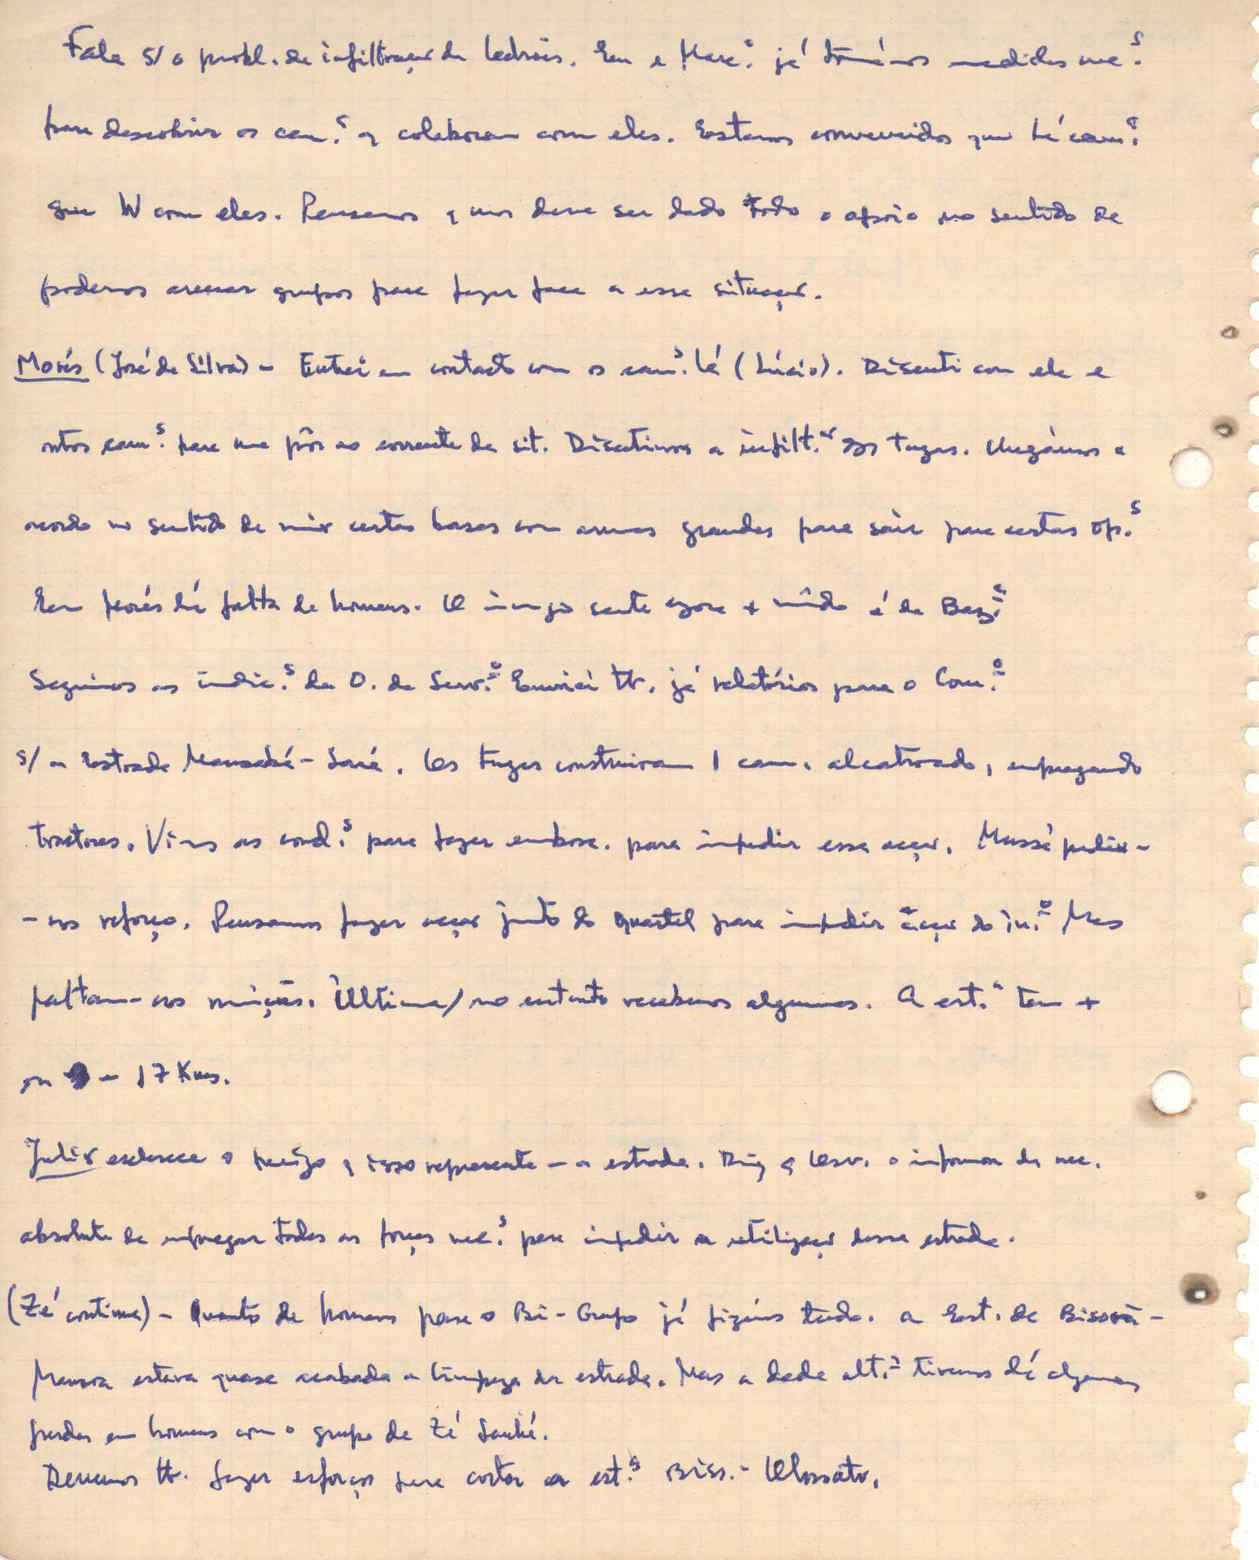 Fala s/ o probl. da infiltração de ladrões. Eu e Marc.º já tomámos medidas nec.s
para descobrir os cam.s q colaboram com eles. Estamos convencidos que há cam.s
que W com eles. Pensamos q nos deve ser dado todo o apoio no sentido de
podermos armar grupos para fazer face a essa situação.
Morés (José da Silva) - Entrei em contacto com os cam.s lá (Lúcio). Discuti com ele e
outros cam.s para me pôr ao corrente da sit. Discutimos a infilt.ão dos tugas. Chegámos a
acordo no sentido de unir certas bases com armas grandes para sair para certas op.s
Em Morés há falta de homens. O inimigo sente agora + unido é da
Seguimos as indic.s da O. de Serv.º Enviei tb. já relatórios para o Com.º
s/ a Estrada Mansabá - . Os tugas construiram 1 cam. alcatroado, empregando
tractores. Vimos as cond.s para fazer embosc. para impedir essa acção. Massé pediu-
-nos reforço. Pensamos fazer acção junto do quartel para impedir acção do in.º Mas
faltam-nos munições. Ultima/ no entanto recebemos algumas. A est.a tem +
ou - 17 Kms.
Julião esclarece o perigo q isso representa - a estrada. Diz q Osv. o informou da nec.
absoluta de empregar todas as forças nec.s para impedir a utilização dessa estrada.
(Zé continua) - Quanto de homens para o Bi-Grupo já fizémos tudo. a Est. de Bissorã-
Mansoa estava quase acabada a limpeza da estrada. Mas a dada alt.a tivemos lá algumas
perdas em homens com o grupo de Zé .
Devemos tb. fazer esforços para cortar as est.s Biss. - Olossato.